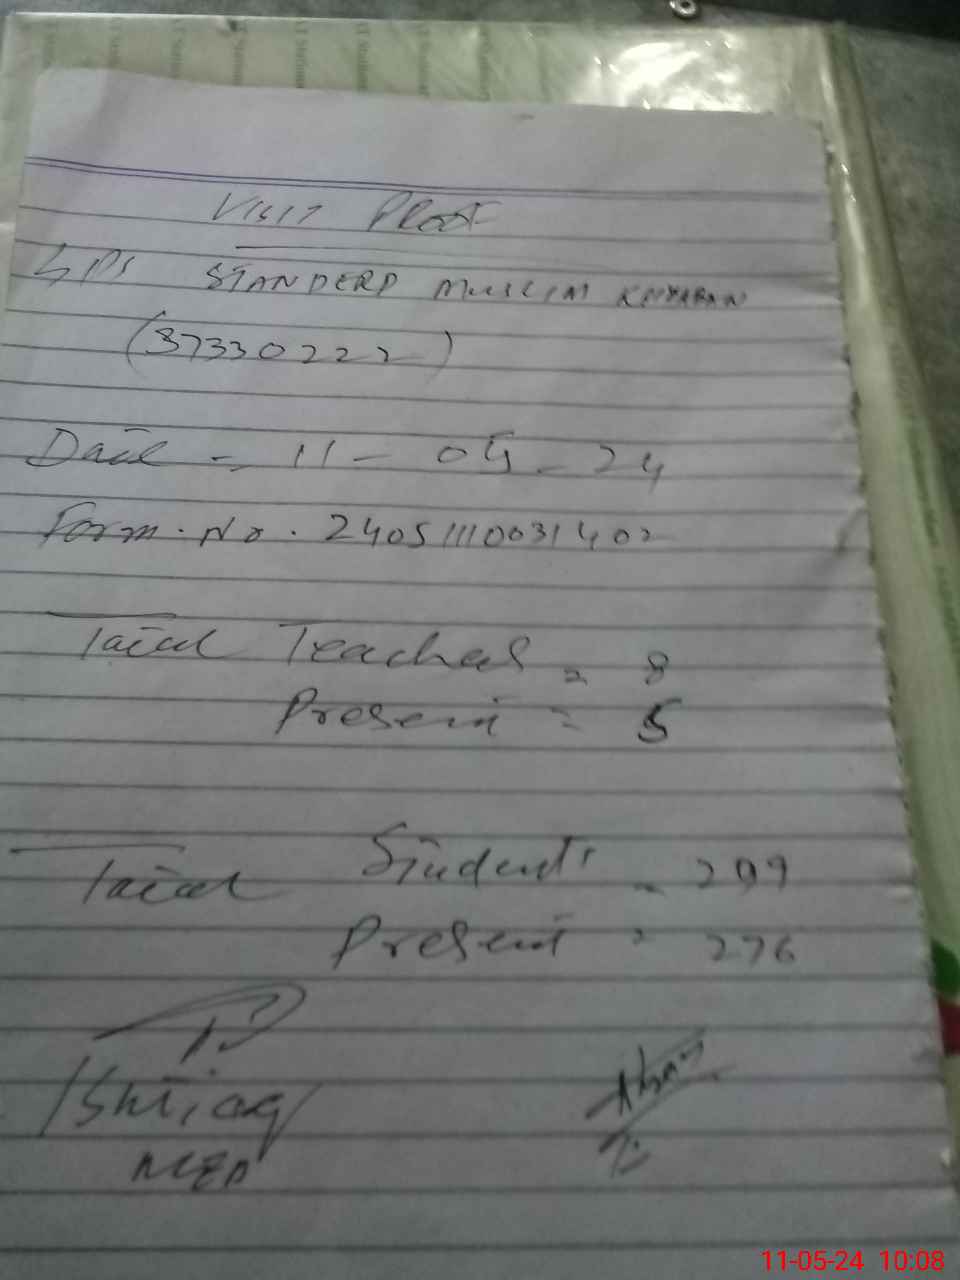 VISIT PROOF
GPS STANDERD MUSLIM KHYABAN
(37330222)
Date - 11-05-24
Form. No. 24051110031402
Total Teaches = 8
Present = 5
Total Students = 299
Present = 276
Ishtiaq
11-05-24 10:08